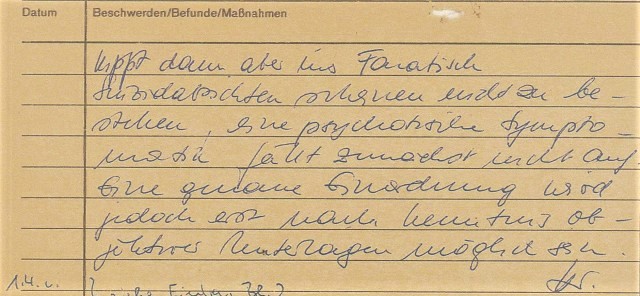 Datum Beschwerden/Befunde/Maßnahmen
kippt dann aber ins Fanatisch
Suizidabsichten scheinen nicht zu be-
stehen, eine psychotische Sympto-
matik fällt zunächst nicht auf.
Eine genaue Einordnung wird
jedoch erst nach Kenntnis ob-
jektiver Unterlagen möglich sein.
1.4.